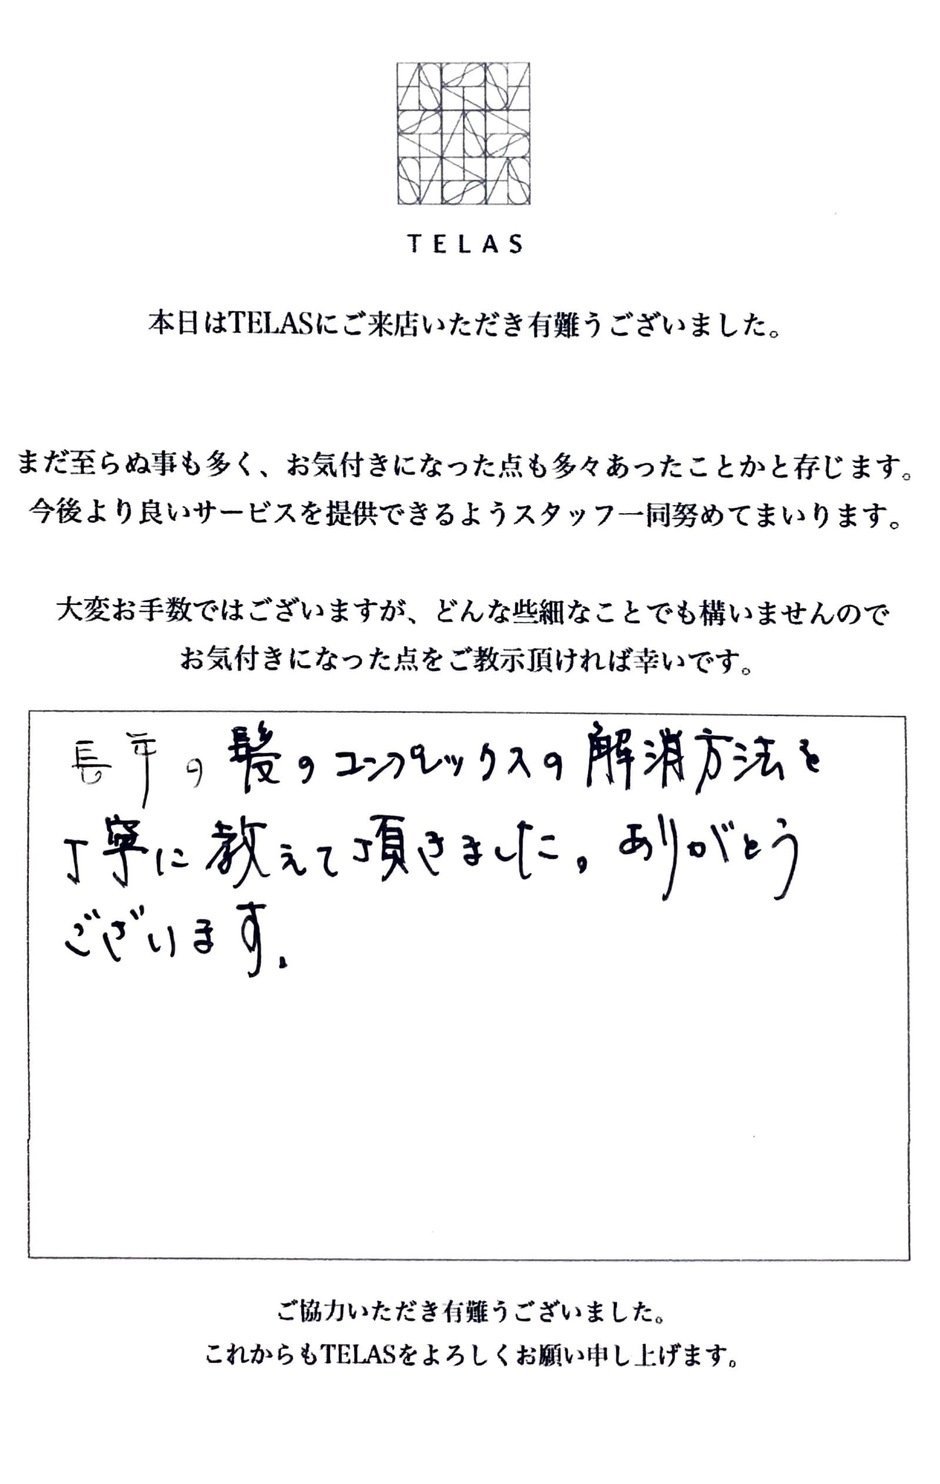 TELAS
本日はTELASにご来店いただき有難うございました。
まだ至らぬ事も多く、お気付きになった点も多々あったことかと存じます。
今後より良いサービスを提供できるようスタッフ一同努めてまいります。
大変お手数ではございますが、どんな些細なことでも構いませんので
お気付きになった点をご教示頂ければ幸いです。
長年の髪のコンプレックスの解消方法を
丁寧に教えて頂きました。ありがとう
ございます.
ご協力いただき有難うございました。
これからもTELASをよろしくお願い申し上げます。